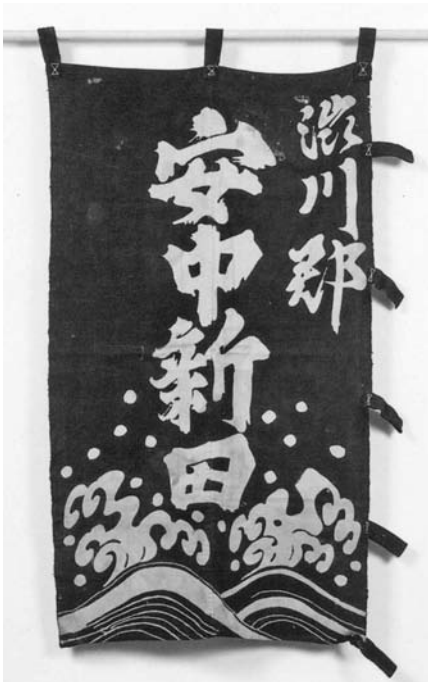 渋川郡
安中新田